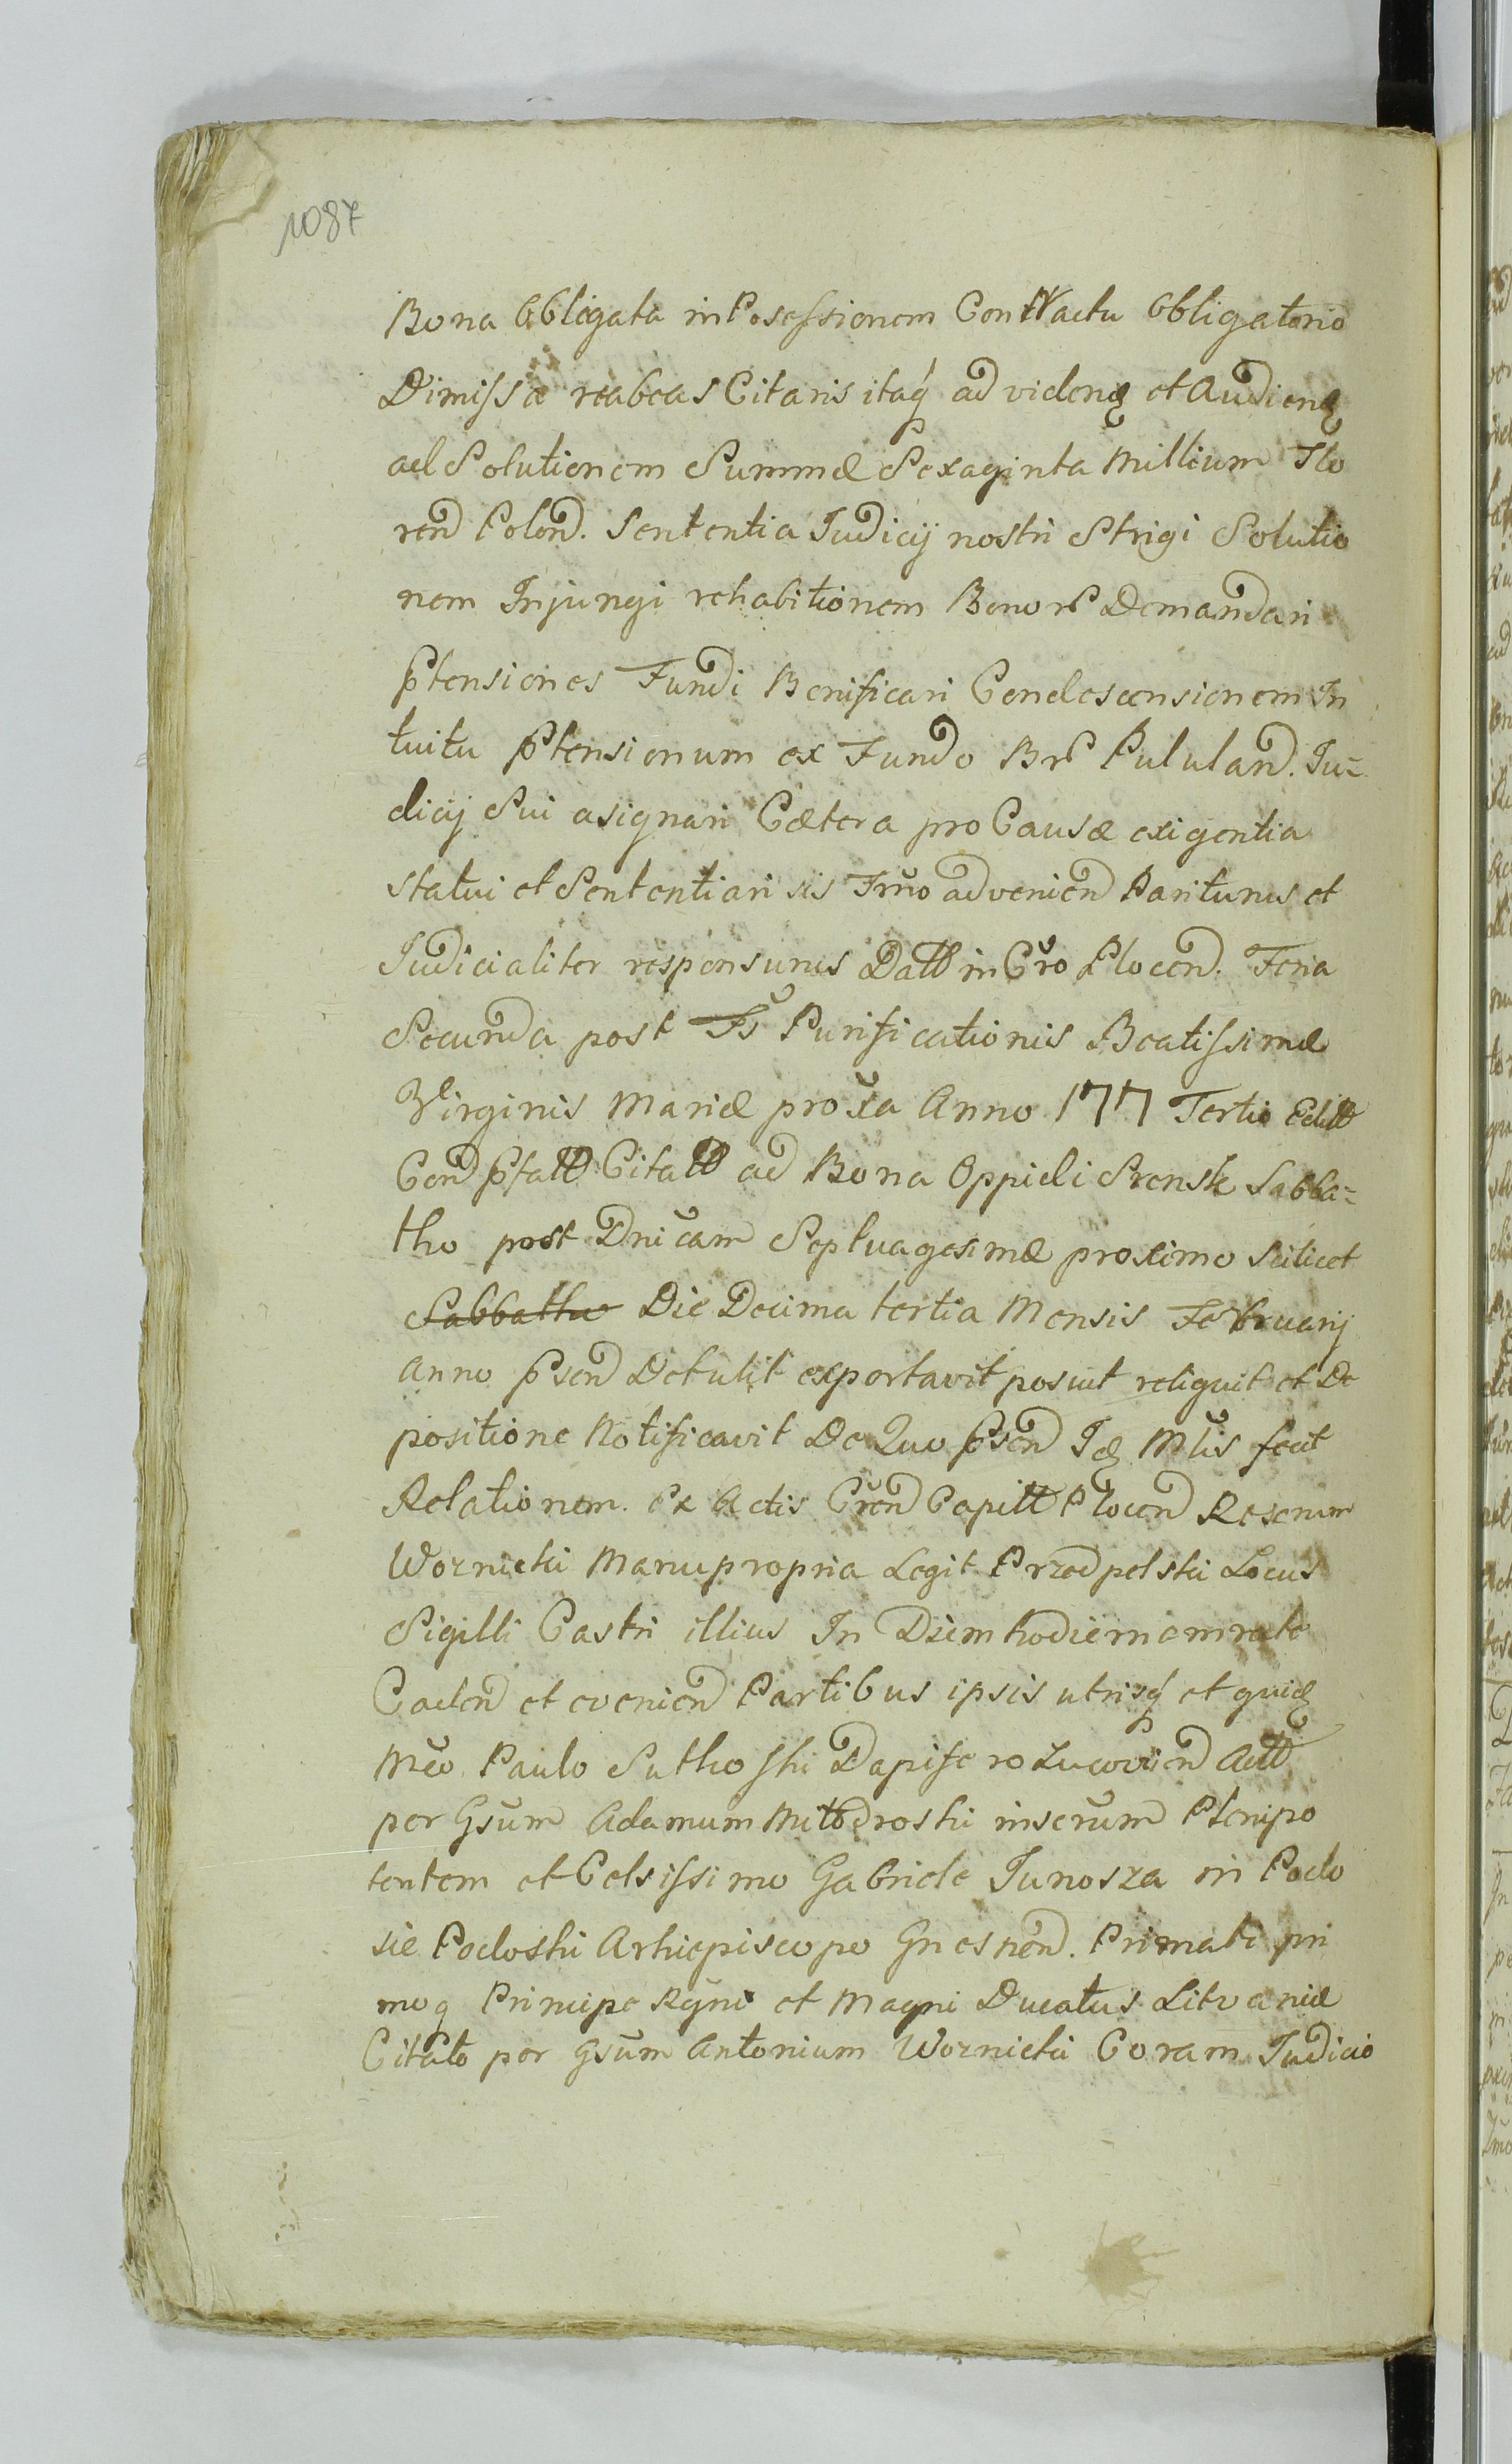 1087
Bona Obligata in Posessionem Contractu Obligatorio
Dimissa reabeas Citaris itaq ad videnq et Audienq
ad Solutionem Summæ Sexaginta Millium Flo
ren Polon. Sententia Iudicij nostri Strigi Solutio
nem Injungi rehabitionem Bonor Demandari
Ptensiones Fundi Bonificari Condescensionem In
tuitu Ptensionum ex Fundo Br Pululan. Iu=
dicij Sui asignari Cætera pro Causæ exigentia
statui et Sententiari sis Trno advenien Pariturus et
Iudicialiter responsurus Datt in Cro Plocen. Feria
Secunda post Fs Purificationis Beatissimæ
Virginis Mariæ proxa Anno 1771 Tertio Editt
Con Pfatt Citatt ad Bona Oppidi Srensk Sabba=
tho post Dnicam Septuagesimæ proximo Scilicet
Sabbatho Die Decima tertia Mensis Februarij
Anno Psen Detulit exportavit posuit reliquit et De
positione Notificavit De Quo Psen Idq Mtis fecit
Relationem. Ex Actis Cren Capitt Plocen Rescrim
Woznicki Manu propria Legit Przedpelski Locus
Sigilli Castri illius In Diem hodiernam rato
Caden et evenien Partibus ipsis utrisq et quiq
Mco Paulo Suthoski Dapifero Lucovien Actt
per Gsum Adamum Milodroski inserum Plenipo
tentem et Celsissimo Gabriele Iunosza in Podo
sie Podoski Arhiepiscopo Gnesnen. Primate pri
moq Principe Regni et Magni Ducatus Litvaniæ
Citato per Gsum Antonium Woznicki Coram Iudicio